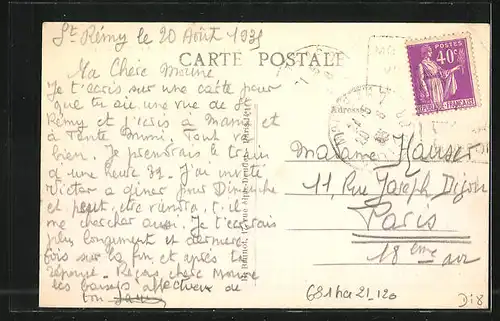 St Rémy le 20 Août 1935
CARTE POSTALE
Ma Chère Moune
Je t'écris sur une carte pour
que tu aie une vue de St
Rémy et j'écris à Maman et
à Tante Mimi. Tout va
bien. Je prendrais le train
d'une heure 32. J'ai invité
Victor à diner pour Dimanche
et peut être viendra t-il
me chercher aussi. Je t'écrirais
plus longuement et dernière
fois sur la fin et après ta
réponse. Reçois chère Moune
les baisers affectueux de
ton
Adresse
Madame Hauser
11, Rue Joseph Dijon
Paris
18ème arr
POSTES
40c
REPUBLIQUE FRANÇAISE
681ha21_120
Di8